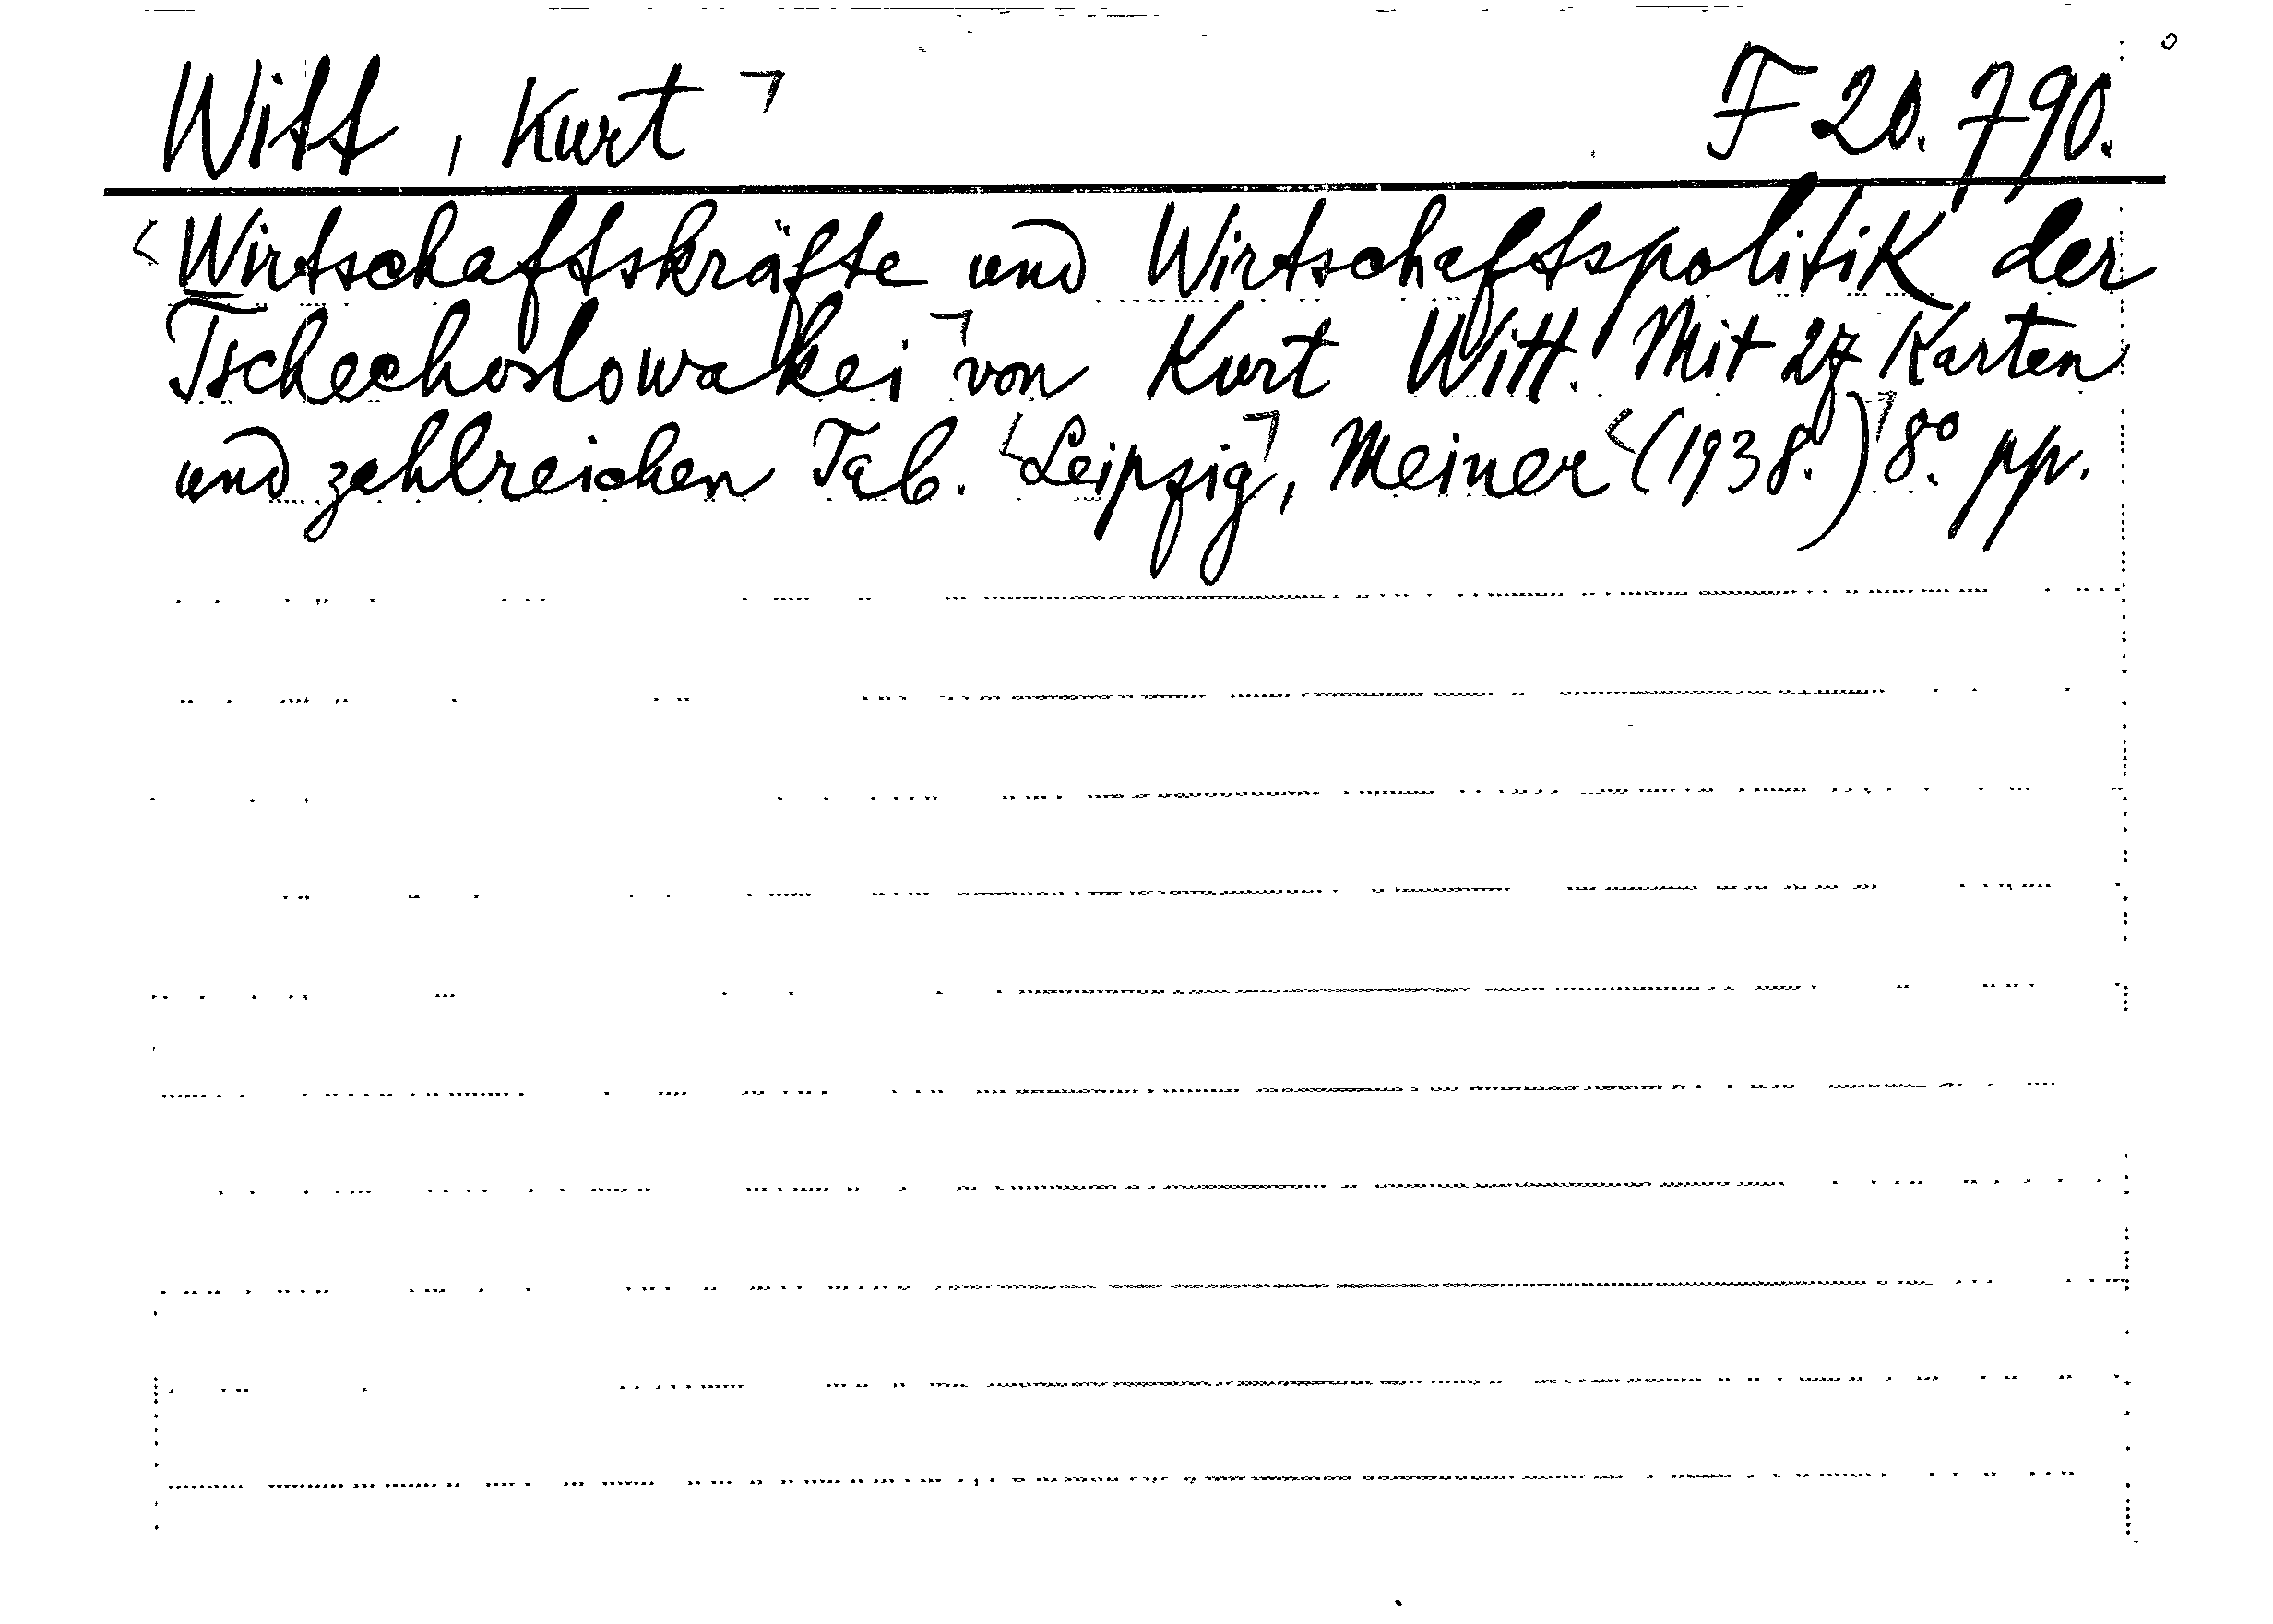 Witt, Kurt ㄱ F 20.790.
<Wirtschaftskräfte und Wirtschaftspolitik der
Tschechoslowakei ㄱ von Kurt Witt. Mit 27 Karten
und zahlreichen Tab. <Leipzig ㄱ, Meiner <(1938.) ㄱ 8.° pp.